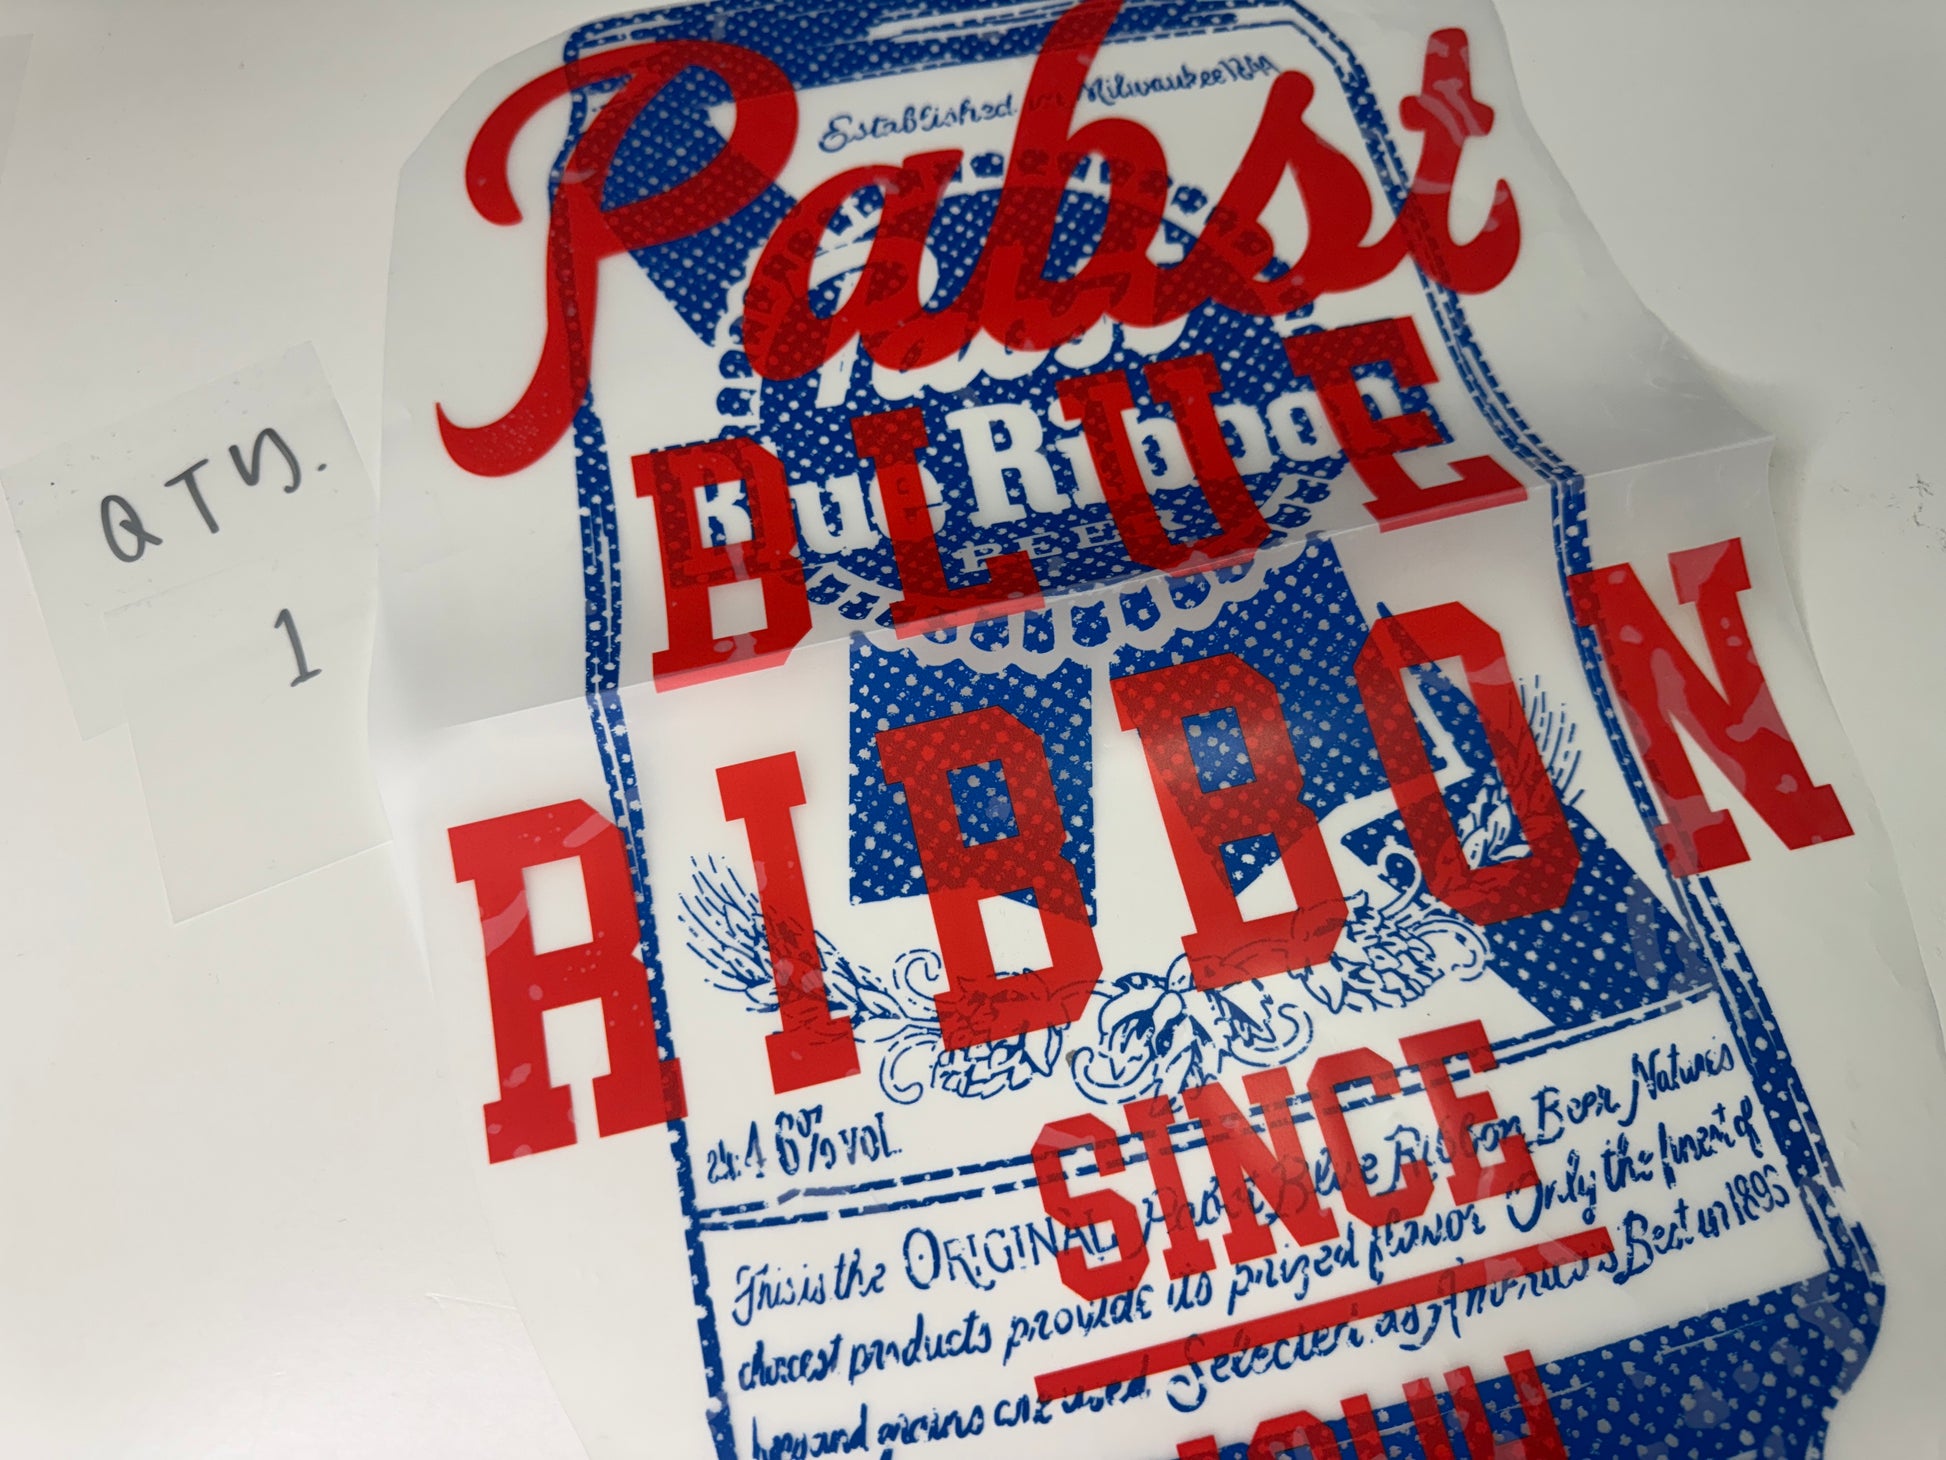 QTY.
1
Established in Milwaukee 1844
Pabst
BLUE
Blue Ribbon
BEER
RIBBON
4.6% VOL.
SINCE
This is the ORIGINAL Pabst Blue Ribbon Beer Nature's
choicest products provide its prized flavor Only the finest of
hops and grains are used. Selected as America's Best in 1893